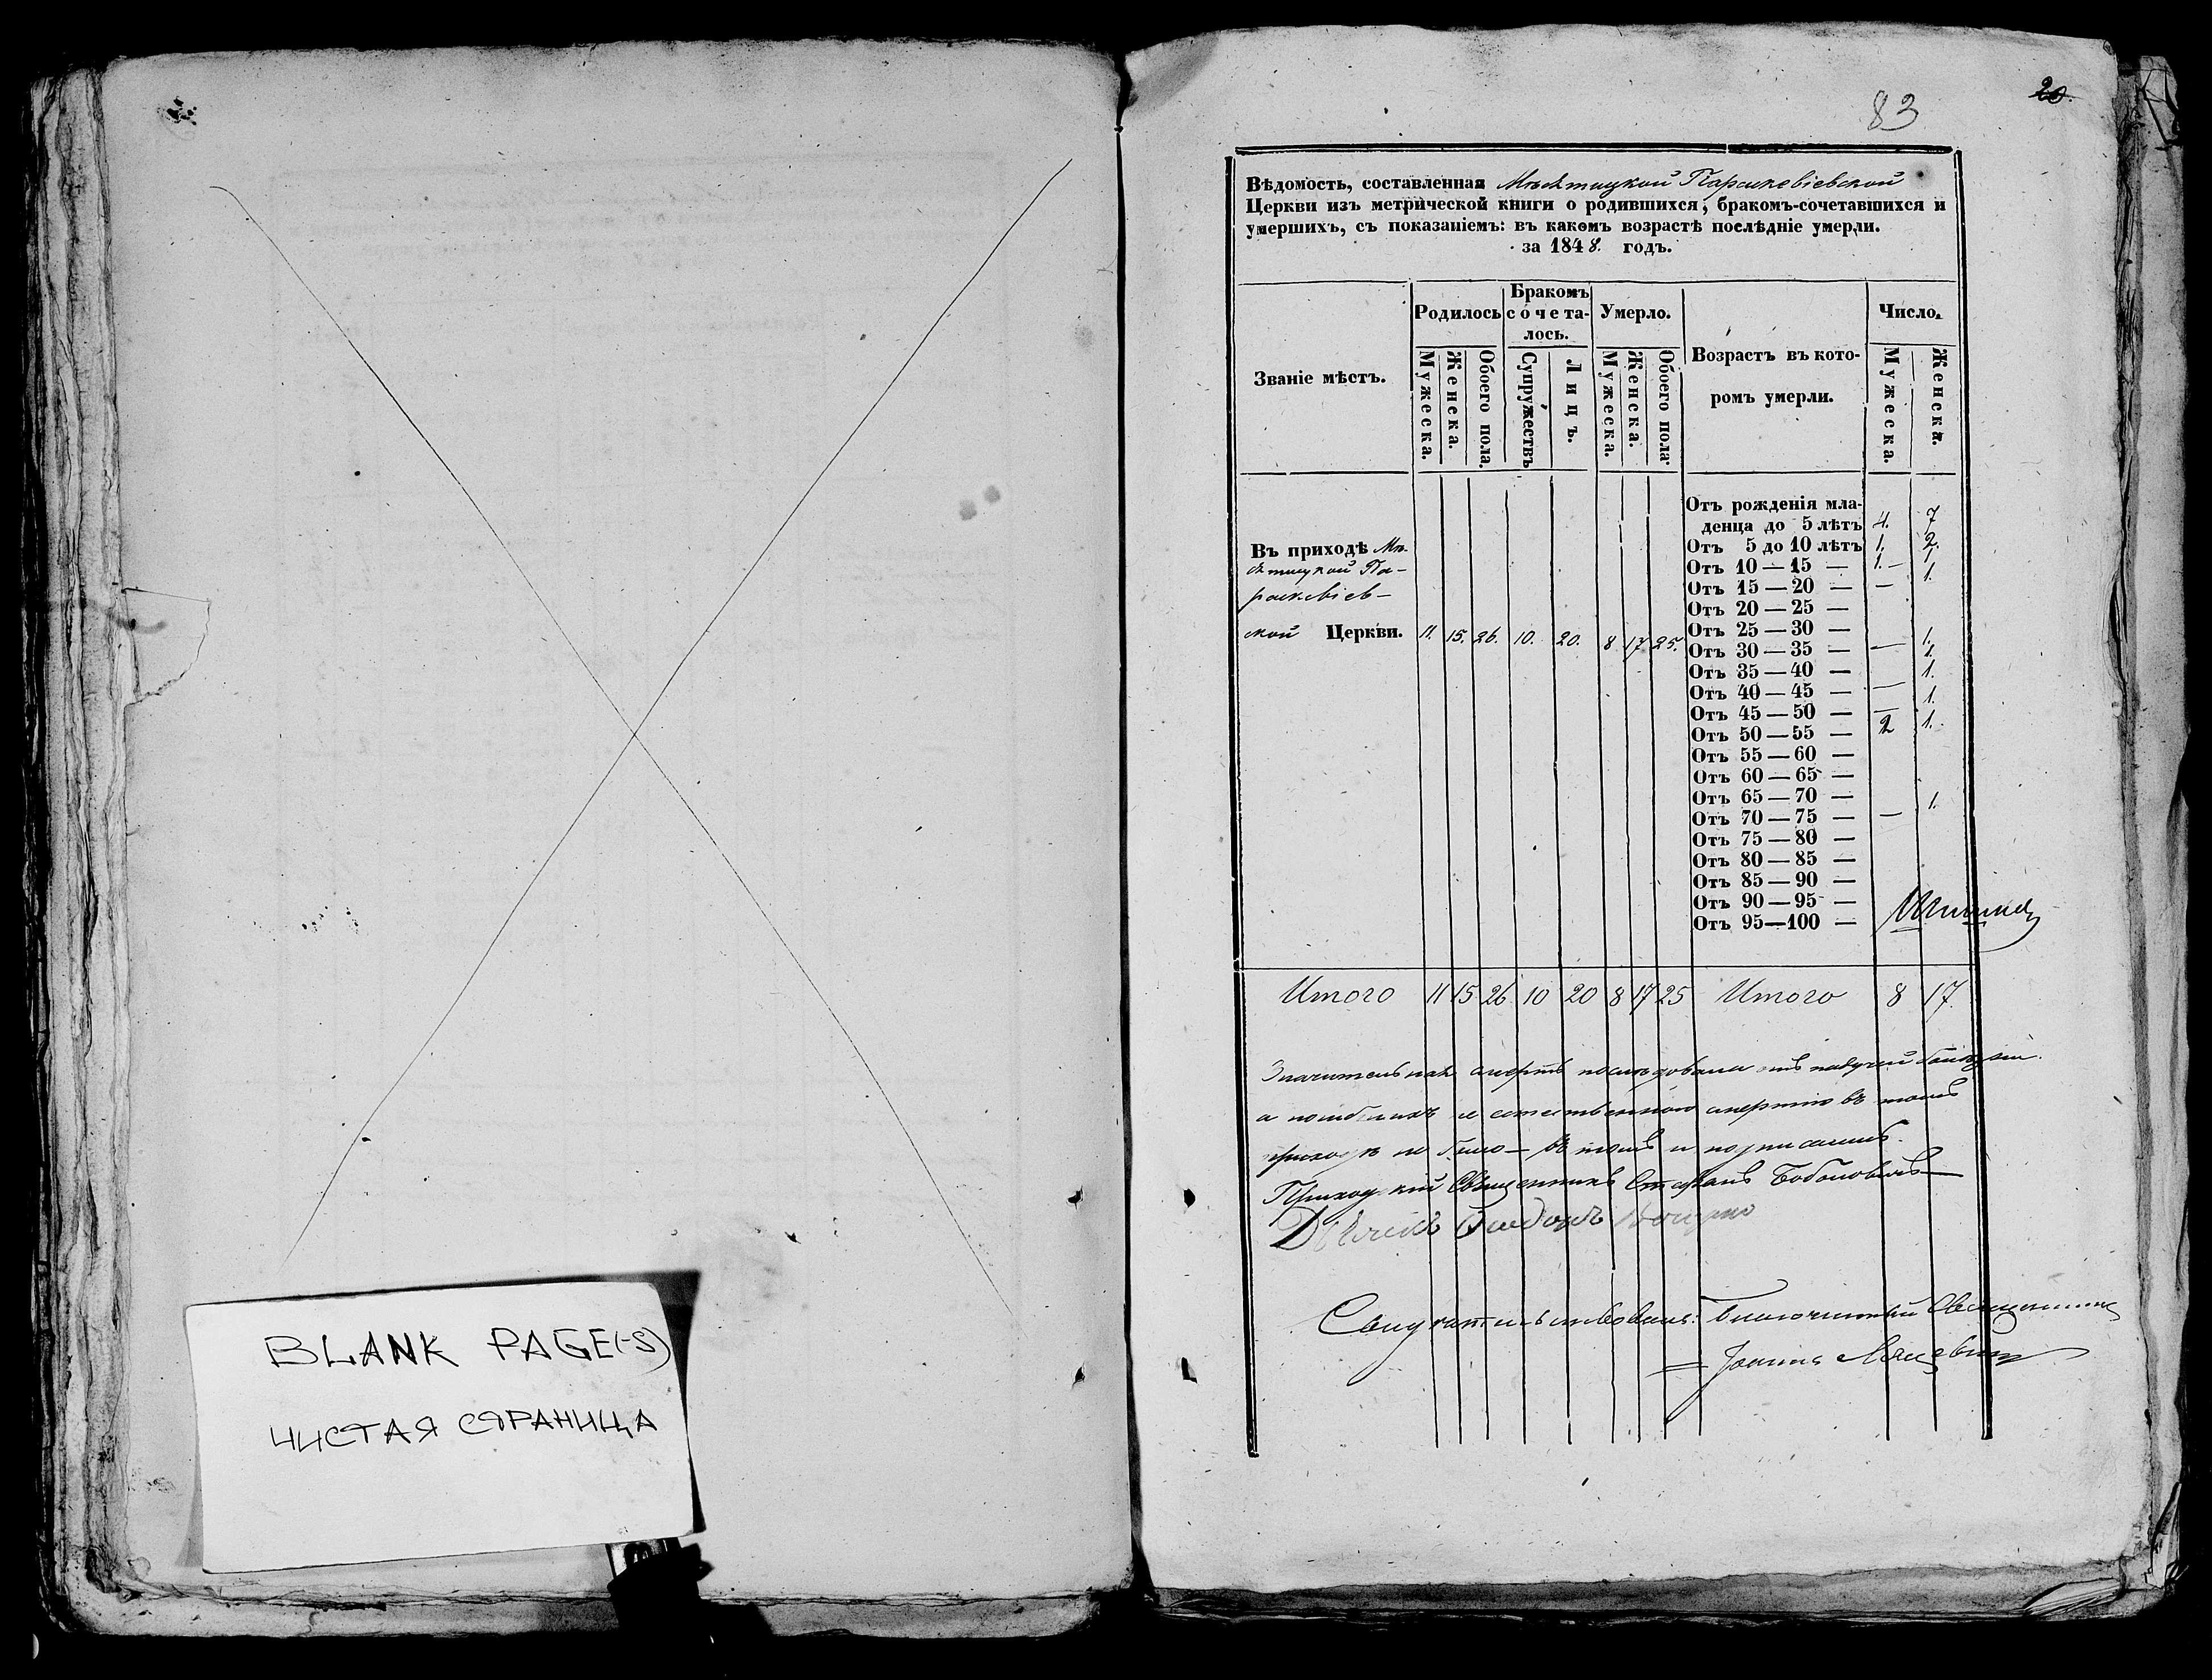 BLANK PAGE(-S)
ЧИСТАЯ СТРАНИЦА
20.
83
Вѣдомость, составленная Параскевіевской
Церкви изъ метрической книги о родившихся, бракомъ-сочетавшихся и
умершихъ, съ показаніемъ: въ какомъ возрастѣ послѣдніе умерли.
за 1848. годъ.
Званіе мѣстъ.
Родилось
Бракомъ сочеталось.
Умерло.
Возрастъ въ которомъ умерли.
Число.
Мужеска.
Женска.
Обоего пола.
Супружествъ
Лицъ.
Мужеска.
Женска.
Обоего пола.
Мужеска.
Женска.
Въ приходѣ
Па-
раскевіев-
ской Церкви. 11. 15. 26. 10. 20. 8 17 25.
Отъ рожденія мла-
денца до 5 лѣтъ 4. 7
Отъ 5 до 10 лѣтъ 1. 2.
Отъ 10 — 15 — 1. — 1
Отъ 15 — 20 — — 1.
Отъ 20 — 25 —
Отъ 25 — 30 —
Отъ 30 — 35 — — 1.
Отъ 35 — 40 — 1.
Отъ 40 — 45 — — 1.
Отъ 45 — 50 — — 1.
Отъ 50 — 55 — 2 1.
Отъ 55 — 60 —
Отъ 60 — 65 —
Отъ 65 — 70 —
Отъ 70 — 75 — — 1.
Отъ 75 — 80 —
Отъ 80 — 85 —
Отъ 85 — 90 —
Отъ 90 — 95 —
Отъ 95—100 —
Итого 11 15 26 10 20 8 17 25 Итого 8 17.
Значительная смерть послѣдовала отъ
а не естественною смертію въ томъ
приходѣ не было — въ томъ и подписались.
Приходскій Священникъ Стефанъ
Дьячекъ
Свидѣтельствовалъ: Благочинный Священникъ
Іоаннъ